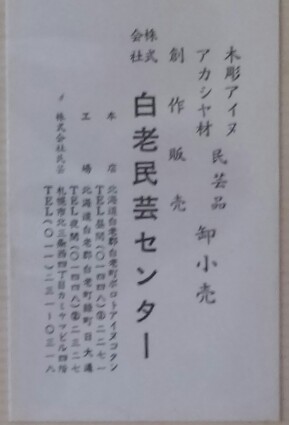 木彫アイヌ
アカシヤ材
民芸品
卸小売
創作販売
株式
会社
白老民芸センター
本店
北海道白老郡白老町ポロトアイヌコタン
TEL昼間(〇一四四八)②二二七一
工場
北海道白老郡白老町緑町日大通
TEL夜間(〇一四四八)②二三二七
〃
株式会社民芸
札幌市北三条西四丁目カミヤマビル四階
TEL(〇一一)二三一〜〇三一八